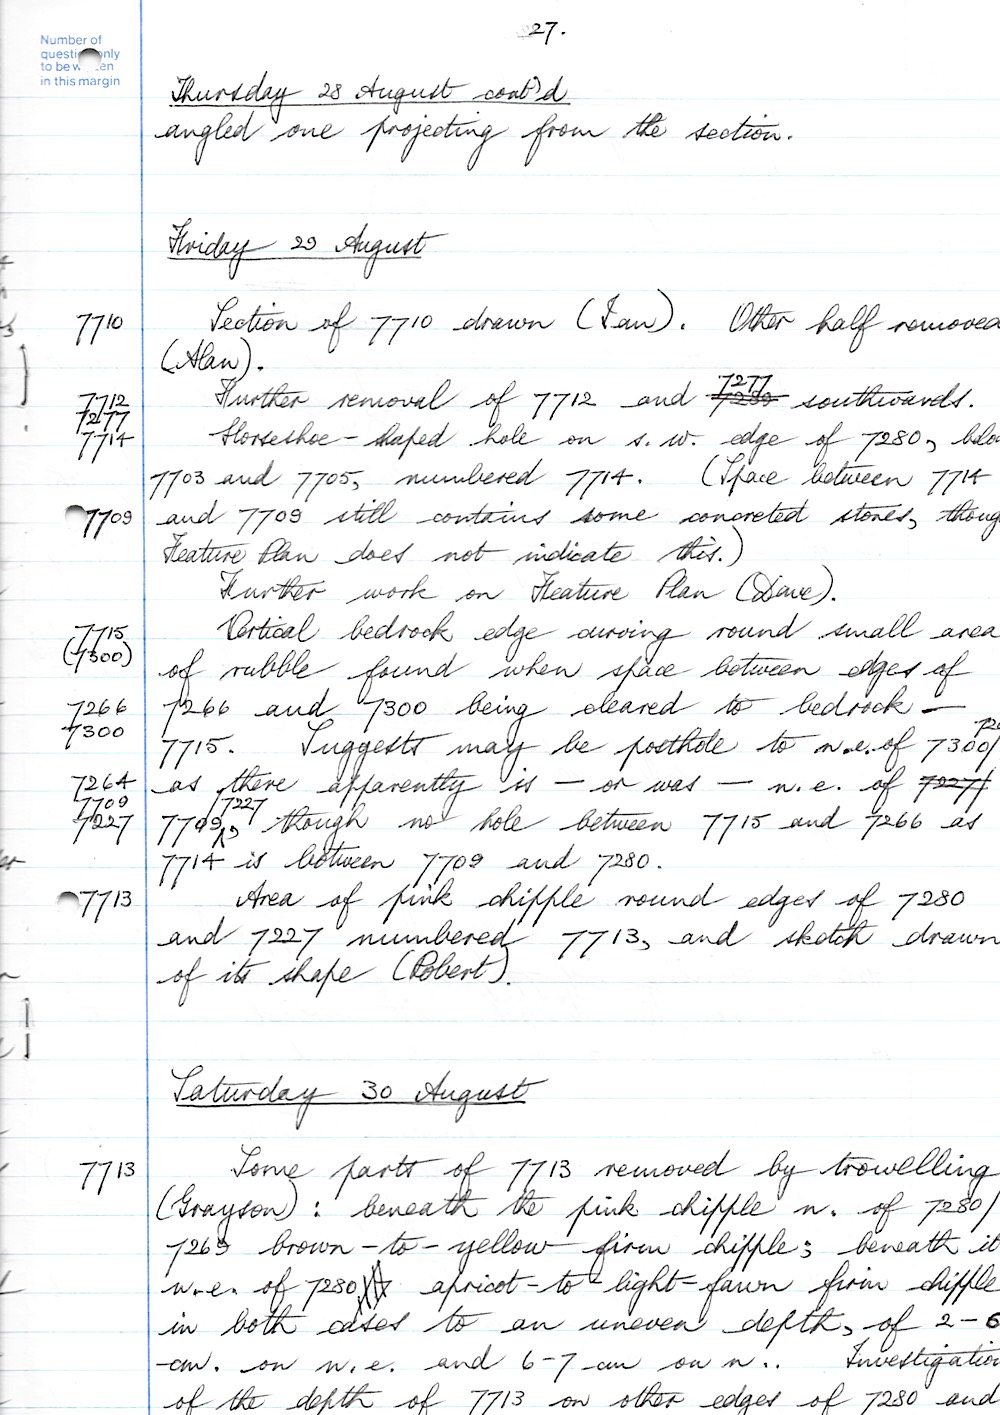 27.
Number of
question only
to be written
in this margin
Thursday 28 August cont'd
angled one projecting from the section.
Friday 29 August
7710 Section of 7710 drawn (Ian). Other half removed
(Alan).
7712 Further removal of 7712 and 7277 southwards.
7277
7714 Horseshoe-shaped hole on s.w. edge of 7280, belo
7703 and 7705, numbered 7714. (Space between 7714
7709 and 7709 still contains some concreted stones, thoug
Feature Plan does not indicate this.)
Further work on Feature Plan (Dave).
7715 Vertical bedrock edge curving round small area
(7300) of rubble found when space between edges of
7266 7266 and 7300 being cleared to bedrock —
7300 7715. Suggests may be posthole to n.e. of 7300/
7264 as there apparently is — or was — n.e. of 7227/
7709 7227
7227 7709, though no hole between 7715 and 7266 as
7714 is between 7709 and 7280.
7713 Area of pink chipple round edges of 7280
and 7227 numbered 7713, and sketch drawn
of its shape (Robert).
Saturday 30 August
7713 Some parts of 7713 removed by trowelling
(Grayson): beneath the pink chipple n. of 7280/
7269 brown-to-yellow firm chipple; beneath it
n.e. of 7280 apricot-to-light-fawn firm chipple
in both cases to an uneven depth, of 2-6
cm. on n.e. and 6-7 cm on n.. Investigation
of the depth of 7713 on other edges of 7280 and